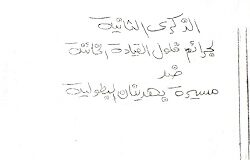 الذكرى الثانية
لجرائم فلول القيادة الخائنة
ضد
مسيرة بهدينان البطولية